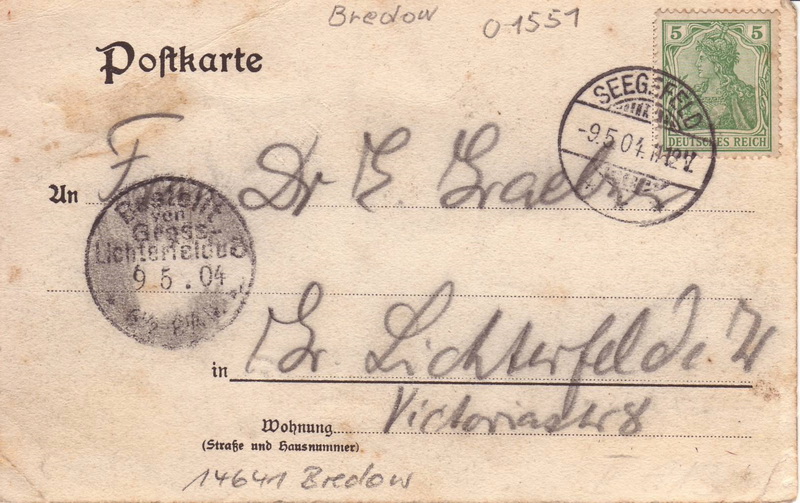 Bredow 01551
Postkarte
5 5
DEUTSCHES REICH
SEEGEFELD
-9.5.04.11-12V.
F
An Dr E. Graebner
Bestellt
von
Gross-
Lichterfelde
9 5 . 04
in Gr. Lichterfelde W
Wohnung Victoriastr 8
(Straße und Hausnummer)
14641 Bredow